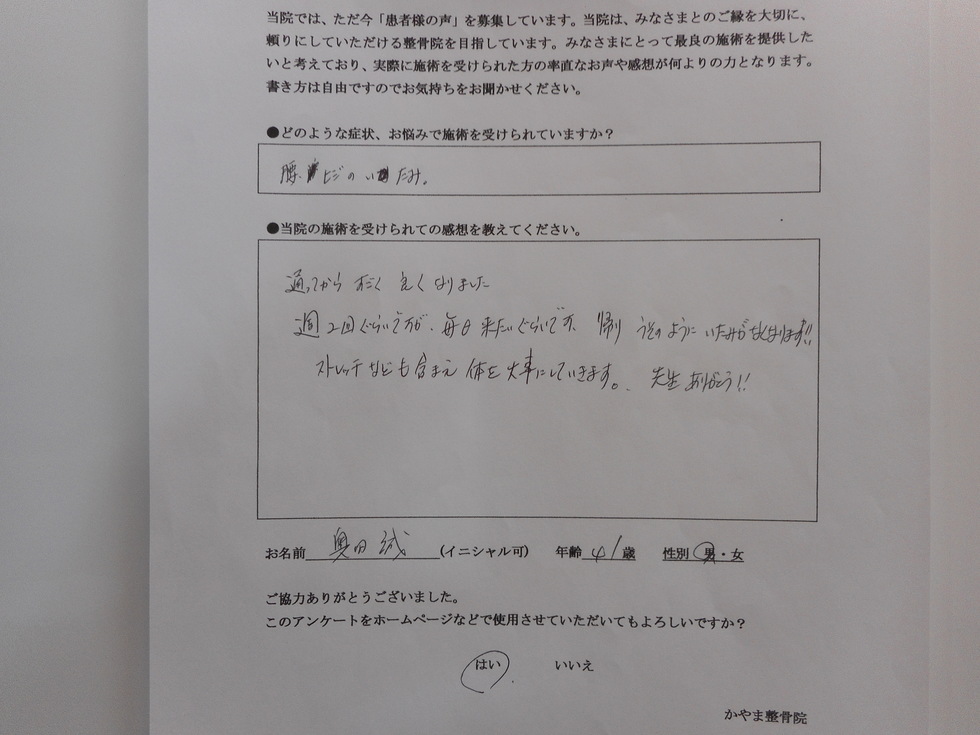 当院では、ただ今「患者様の声」を募集しています。当院は、みなさまとのご縁を大切に、
頼りにしていただける整骨院を目指しています。みなさまにとって最良の施術を提供した
いと考えており、実際に施術を受けられた方の率直なお声や感想が何よりの力となります。
書き方は自由ですのでお気持ちをお聞かせください。
●どのような症状、お悩みで施術を受けられていますか？
腰、ヒジのいたみ。
●当院の施術を受けられての感想を教えてください。
通ってから 良くなりました
週2回ぐらいですが、毎日来たいぐらいです、帰り うそのように いたみがなくなります!!
ストレッチなども含まえ 体を大事にしていきます。、先生ありがとう!!
お名前 奥田 誠 (イニシャル可) 年齢 41 歳 性別 男・女
ご協力ありがとうございました。
このアンケートをホームページなどで使用させていただいてもよろしいですか？
はい いいえ
かやま整骨院